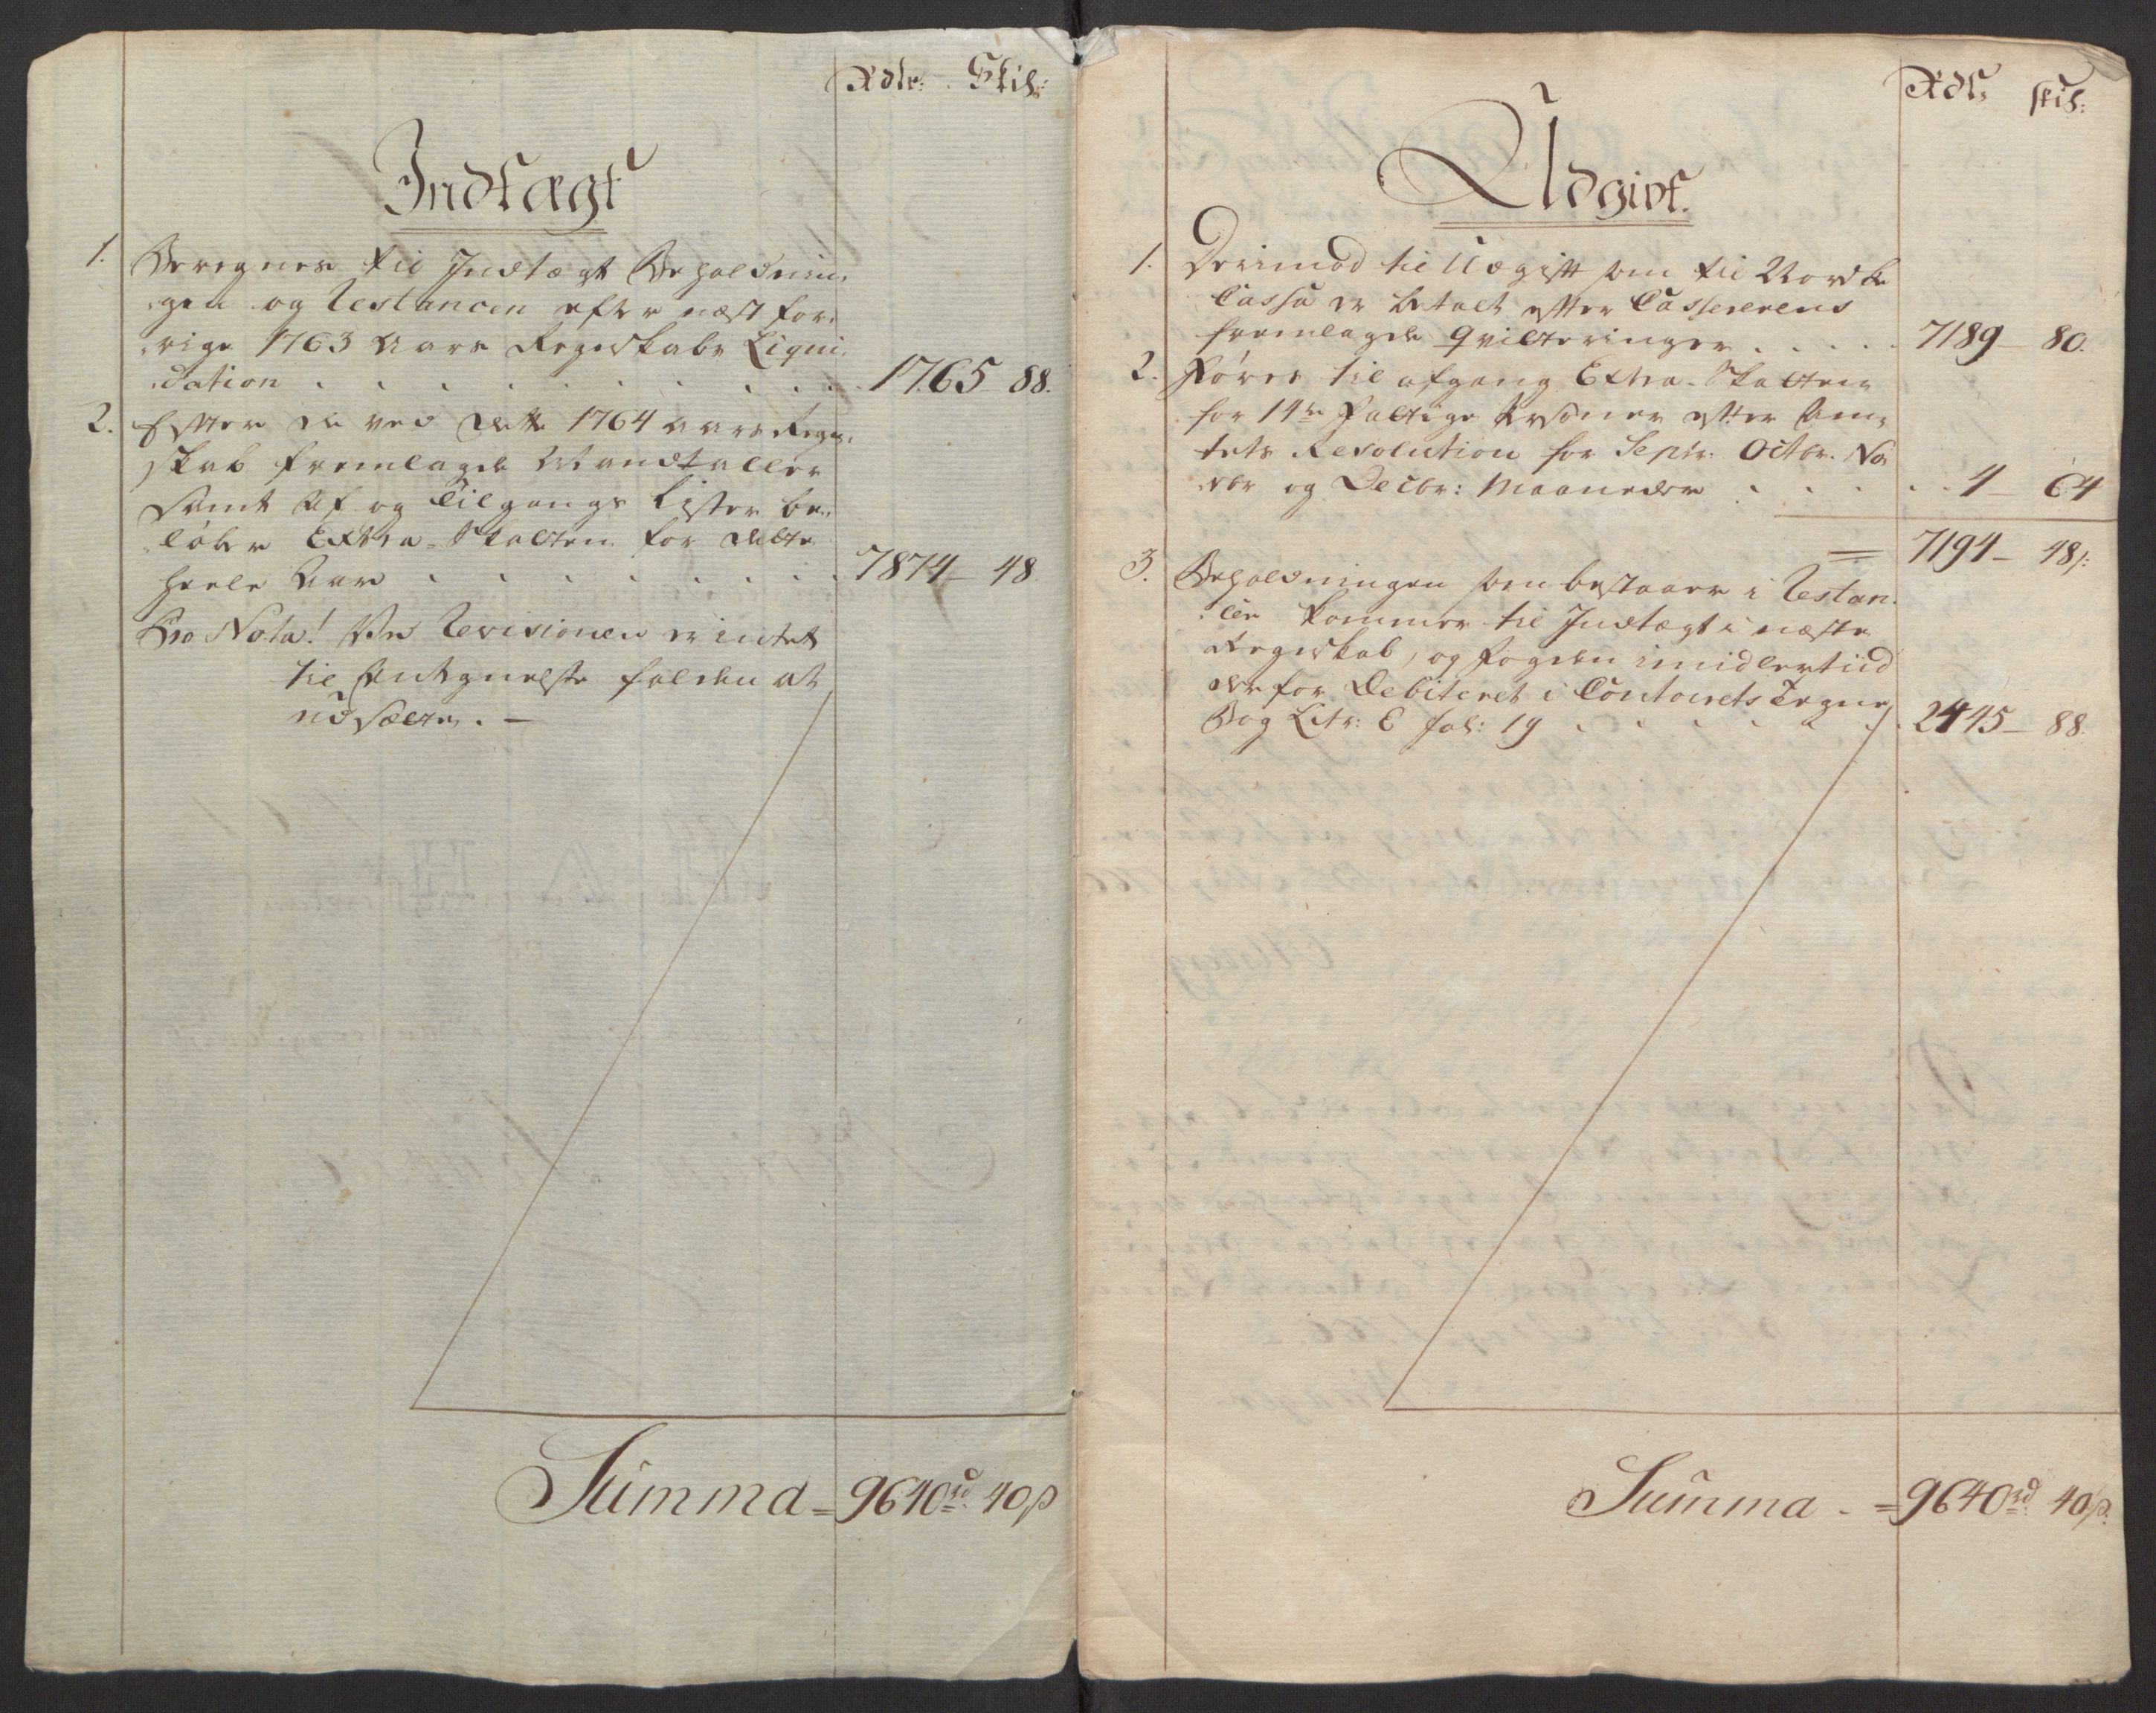 Rdlr: Skil:
Indtægt
1. Beregnes til Indtægt Beholdnin,
,gen og Restancen efter næst for,
,rige 1763 Aars Regnskabs Liqui,
,dation . . . . . . . . . 1765 88.
2. Efter de ved dette 1764 Aars Regn,
skab fremlagde Mandtaller
samt Af og Tilgangs Lister be,
,løber Extra-Skatten for dette
heele Aar . . . . . . . . 7874 - 48.
Pro Nota! Ved Revisionen er intet
til Antegnelse falden at
udsætte. -
Summa = 9640 rd 40 s
Rdl: skil:
Udgivt.
1. Derimod til Udgift som til Nordke
Cassa er betalt efter Cassererens
fremlagde Qvitteringer . . . . . 7189 - 80.
2. Føres til afgang Extra-Skatten
for 14de Fattige Personer efter Am,
tets Resolution for Septr. Octbr. No,
vbr og Decbr: Maaneder . . . . . 4 - 64
= 7194 - 48 s:
3. Beholdningen som bestaaer i Restan,
,cer kommer til Indtægt i næste
Regnskab, og Fogden imidlertiid
der for Debiteret i Contoirets Regne
Bog Litr: E fol: 19 . . . . . . 2445 - 88.
Summa - = 9640 rd 40 s.